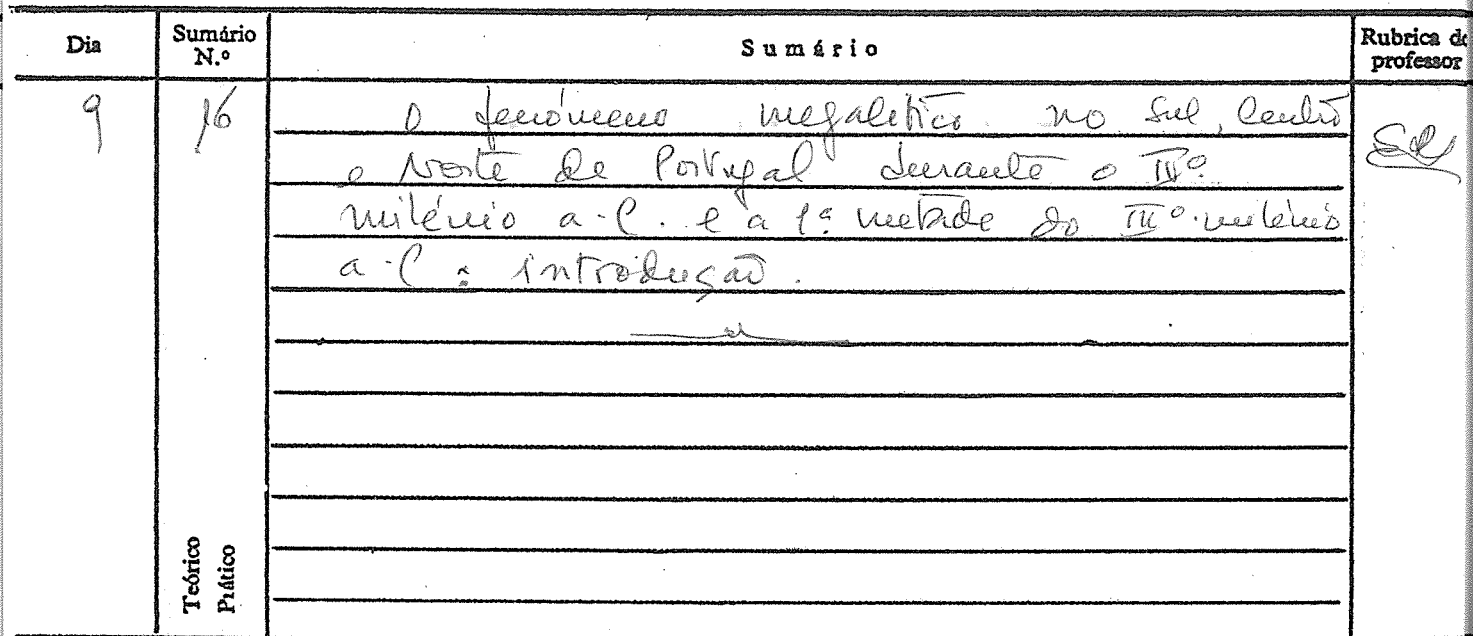 Dia
Sumário N.º
Sumário
Rubrica do professor
9
16
O fenómeno megalítico no Sul, Centro
e Norte de Portugal durante o IVº
milénio a.C. e a 1ª metade do IIIº milénio
a.C: introdução.
Teórico
Prático